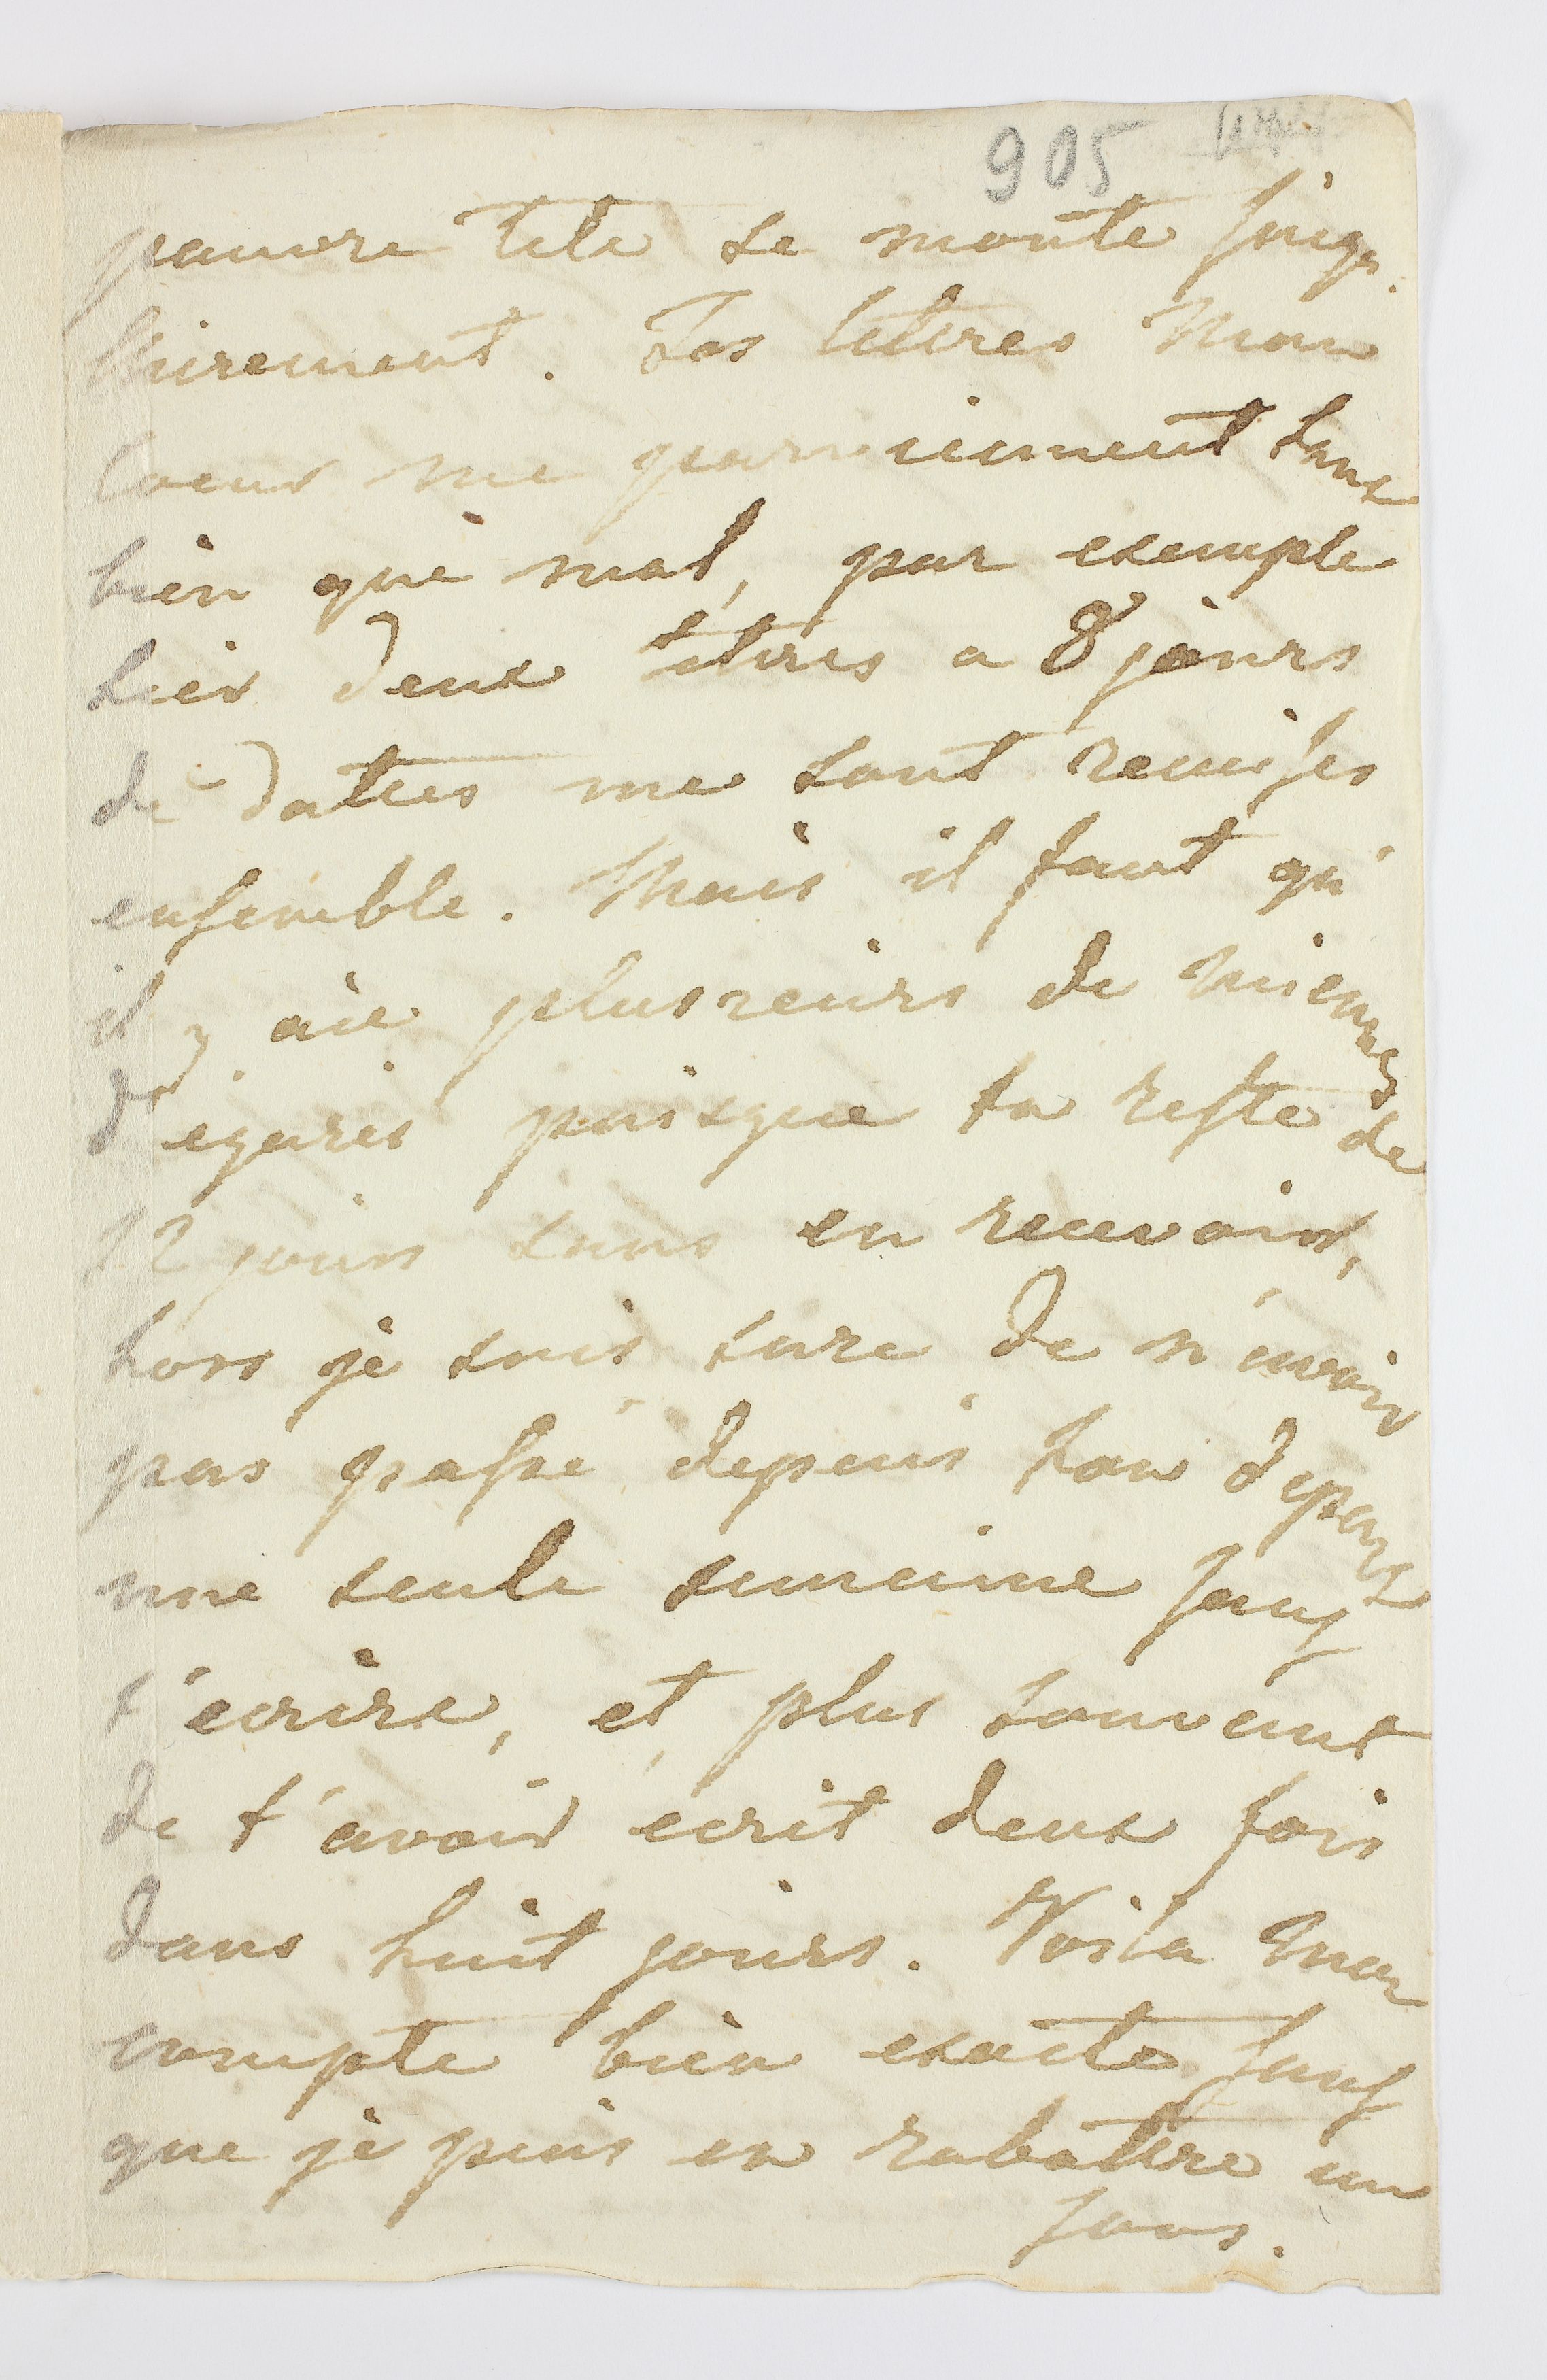 905
pauvre tete se monte singu
lierement. Tes lettres Mon
Coeur me parviennent tant
bien que mal, par exemple
hier deux lettres a 8 jours
de dattes me sont remises
ensemble. Mais il faut qu'
il y aie plusieurs de miennes
d'egares puisque tu reste de
12 jours sans en recevoir,
hors je suis sure de n'avoir
pas passé depuis ton depart
une seule semaine sans
t'ecrire, et plus souvent
de t'avoir ecrit deux fois
dans huit jours. Voila mon
compte bien exacte sans
que je puis en rabattre un
sous.